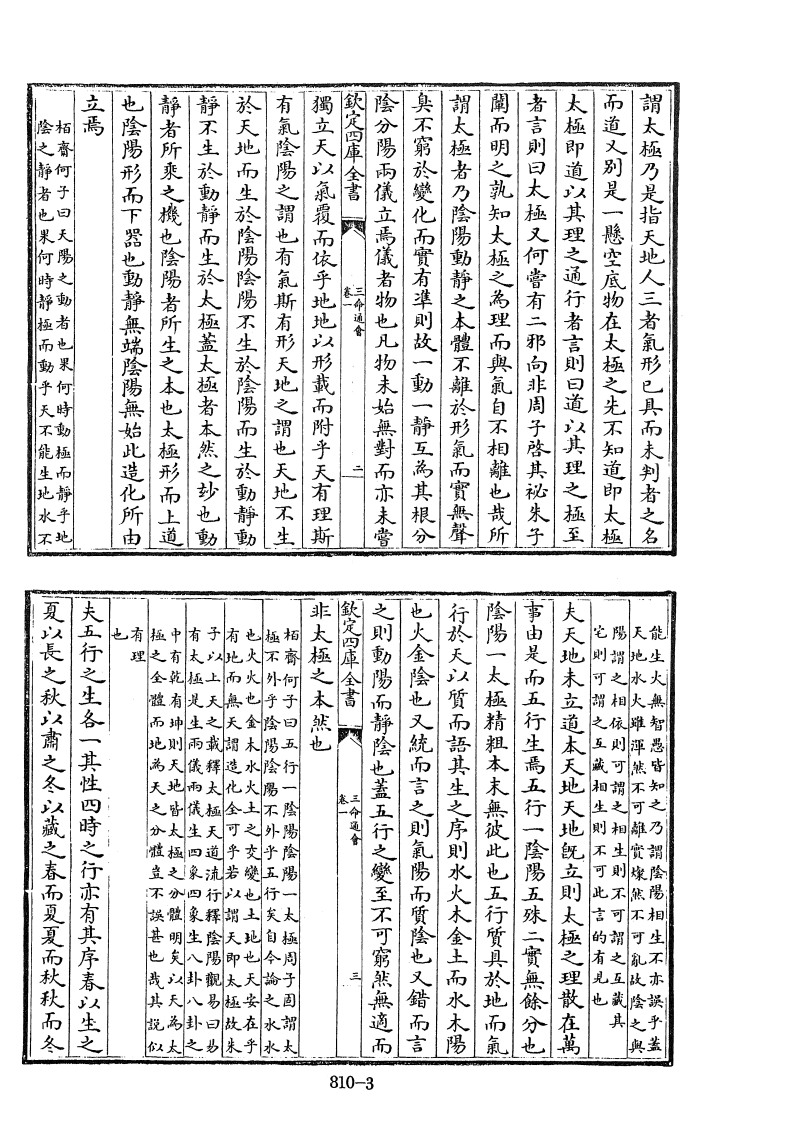 謂太極乃是指天地人三者氣形已具而未判者之名
而道又别是一懸空底物在太極之先不知道即太極
太極即道以其理之通行者言則曰道以其理之極至
者言則曰太極又何嘗有二邪向非周子啓其祕朱子
闡而明之孰知太極之為理而與氣自不相離也哉所
謂太極者乃陰陽動靜之本體不離於形氣而實無聲
臭不窮於變化而實有準則故一動一靜互為其根分
陰分陽兩儀立焉儀者物也凡物未始無對而亦未嘗
欽定四庫全書
三命通會
卷一
二
獨立天以氣覆而依乎地地以形載而附乎天有理斯
有氣陰陽之謂也有氣斯有形天地之謂也天地不生
於天地而生於陰陽陰陽不生於陰陽而生於動靜動
靜不生於動靜而生於太極蓋太極者本然之玅也動
靜者所乘之機也陰陽者所生之本也太極形而上道
也陰陽形而下器也動靜無端陰陽無始此造化所由
立焉
栢齋何子曰天陽之動者也果何時動極而靜乎地
陰之靜者也果何時靜極而動乎天不能生地水不
能生火無智愚皆知之乃謂陰陽相生不亦誤乎蓋
天地水火雖渾然不可離實燦然不可亂故陰之與
陽謂之相依則可謂之相生則不可謂之互藏其
宅則可謂之互藏相生則不可此言的有見也
夫天地未立道本天地天地既立則太極之理散在萬
事由是而五行生焉五行一陰陽五殊二實無餘分也
陰陽一太極精粗本末無彼此也五行質具於地而氣
行於天以質而語其生之序則水火木金土而水木陽
也火金陰也又統而言之則氣陽而質陰也又錯而言
之則動陽而靜陰也蓋五行之變至不可窮然無適而
欽定四庫全書
三命通會
卷一
三
非太極之本然也
栢齋何子曰五行一陰陽陰陽一太極周子固謂太
極不外乎陰陽陰陽不外乎五行矣自今論之水水
也火火也金木水火土之交變也土地也天安在乎
有地而無天謂造化全可乎若以謂天即太極故朱
子以上天之載釋太極天道流行釋陰陽觀易曰易
有太極是生兩儀兩儀生四象四象生八卦八卦之
中有乾有坤則天地皆太極之分體明矣以天為太
極之全體而地為天之分體豈不誤甚也哉其説似
有理
也
夫五行之生各一其性四時之行亦有其序春以生之
夏以長之秋以肅之冬以藏之春而夏夏而秋秋而冬
810-3